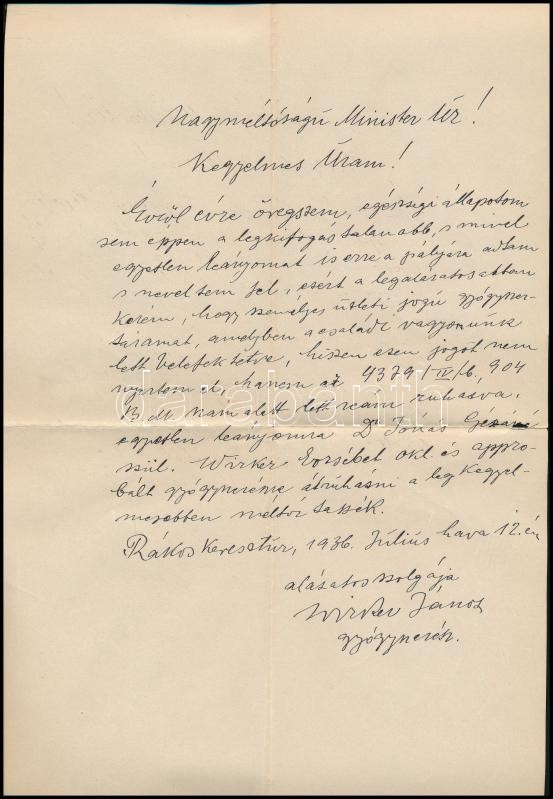 Nagyméltóságú Minister Úr!
Kegyelmes Uram!
Évről évre öregszem, egészségi állapotom
sem eppen a legkifogástalanabb, s mivel
egyetlen leányomat is erre a pályára adtam
s neveltem fel, ezért a legalázatosabban
kérem, hogy személyes üzleti jogú gyógyszer-
táramat, amelyben a családi vagyonunk
lett belefektetve, hiszen ezen jogot nem
nyertem el, hanem az 4379/IV/b, 904
B. dt. szám alatt lett reám ruházva,
egyetlen leányomra Dr Jónás Gézáné
szül. Wirker Erzsébet okl. és appro-
bált gyógyszerészre átruházni a legkegyel-
mesebben méltóztassék.
Rákoskeresztúr, 1936. Július hava 12.én
alázatos szolgája
Wirker János
gyógyszerész.
darabanth